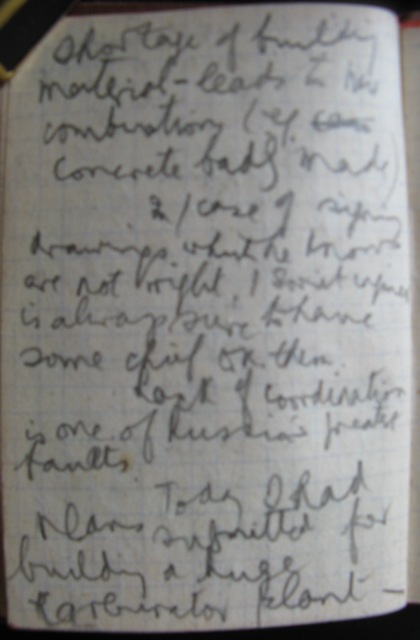 Shortage of building
material - leads to
combination (eg.
concrete badly made)
2/ case of signing
drawings which he knows
are not right. Soviet engineer
is always sure to have
some chief OK them.
Lack of coordination
is one of Russia's greatest
faults.
Today I had
plans submitted for
building a huge
carburator plant -